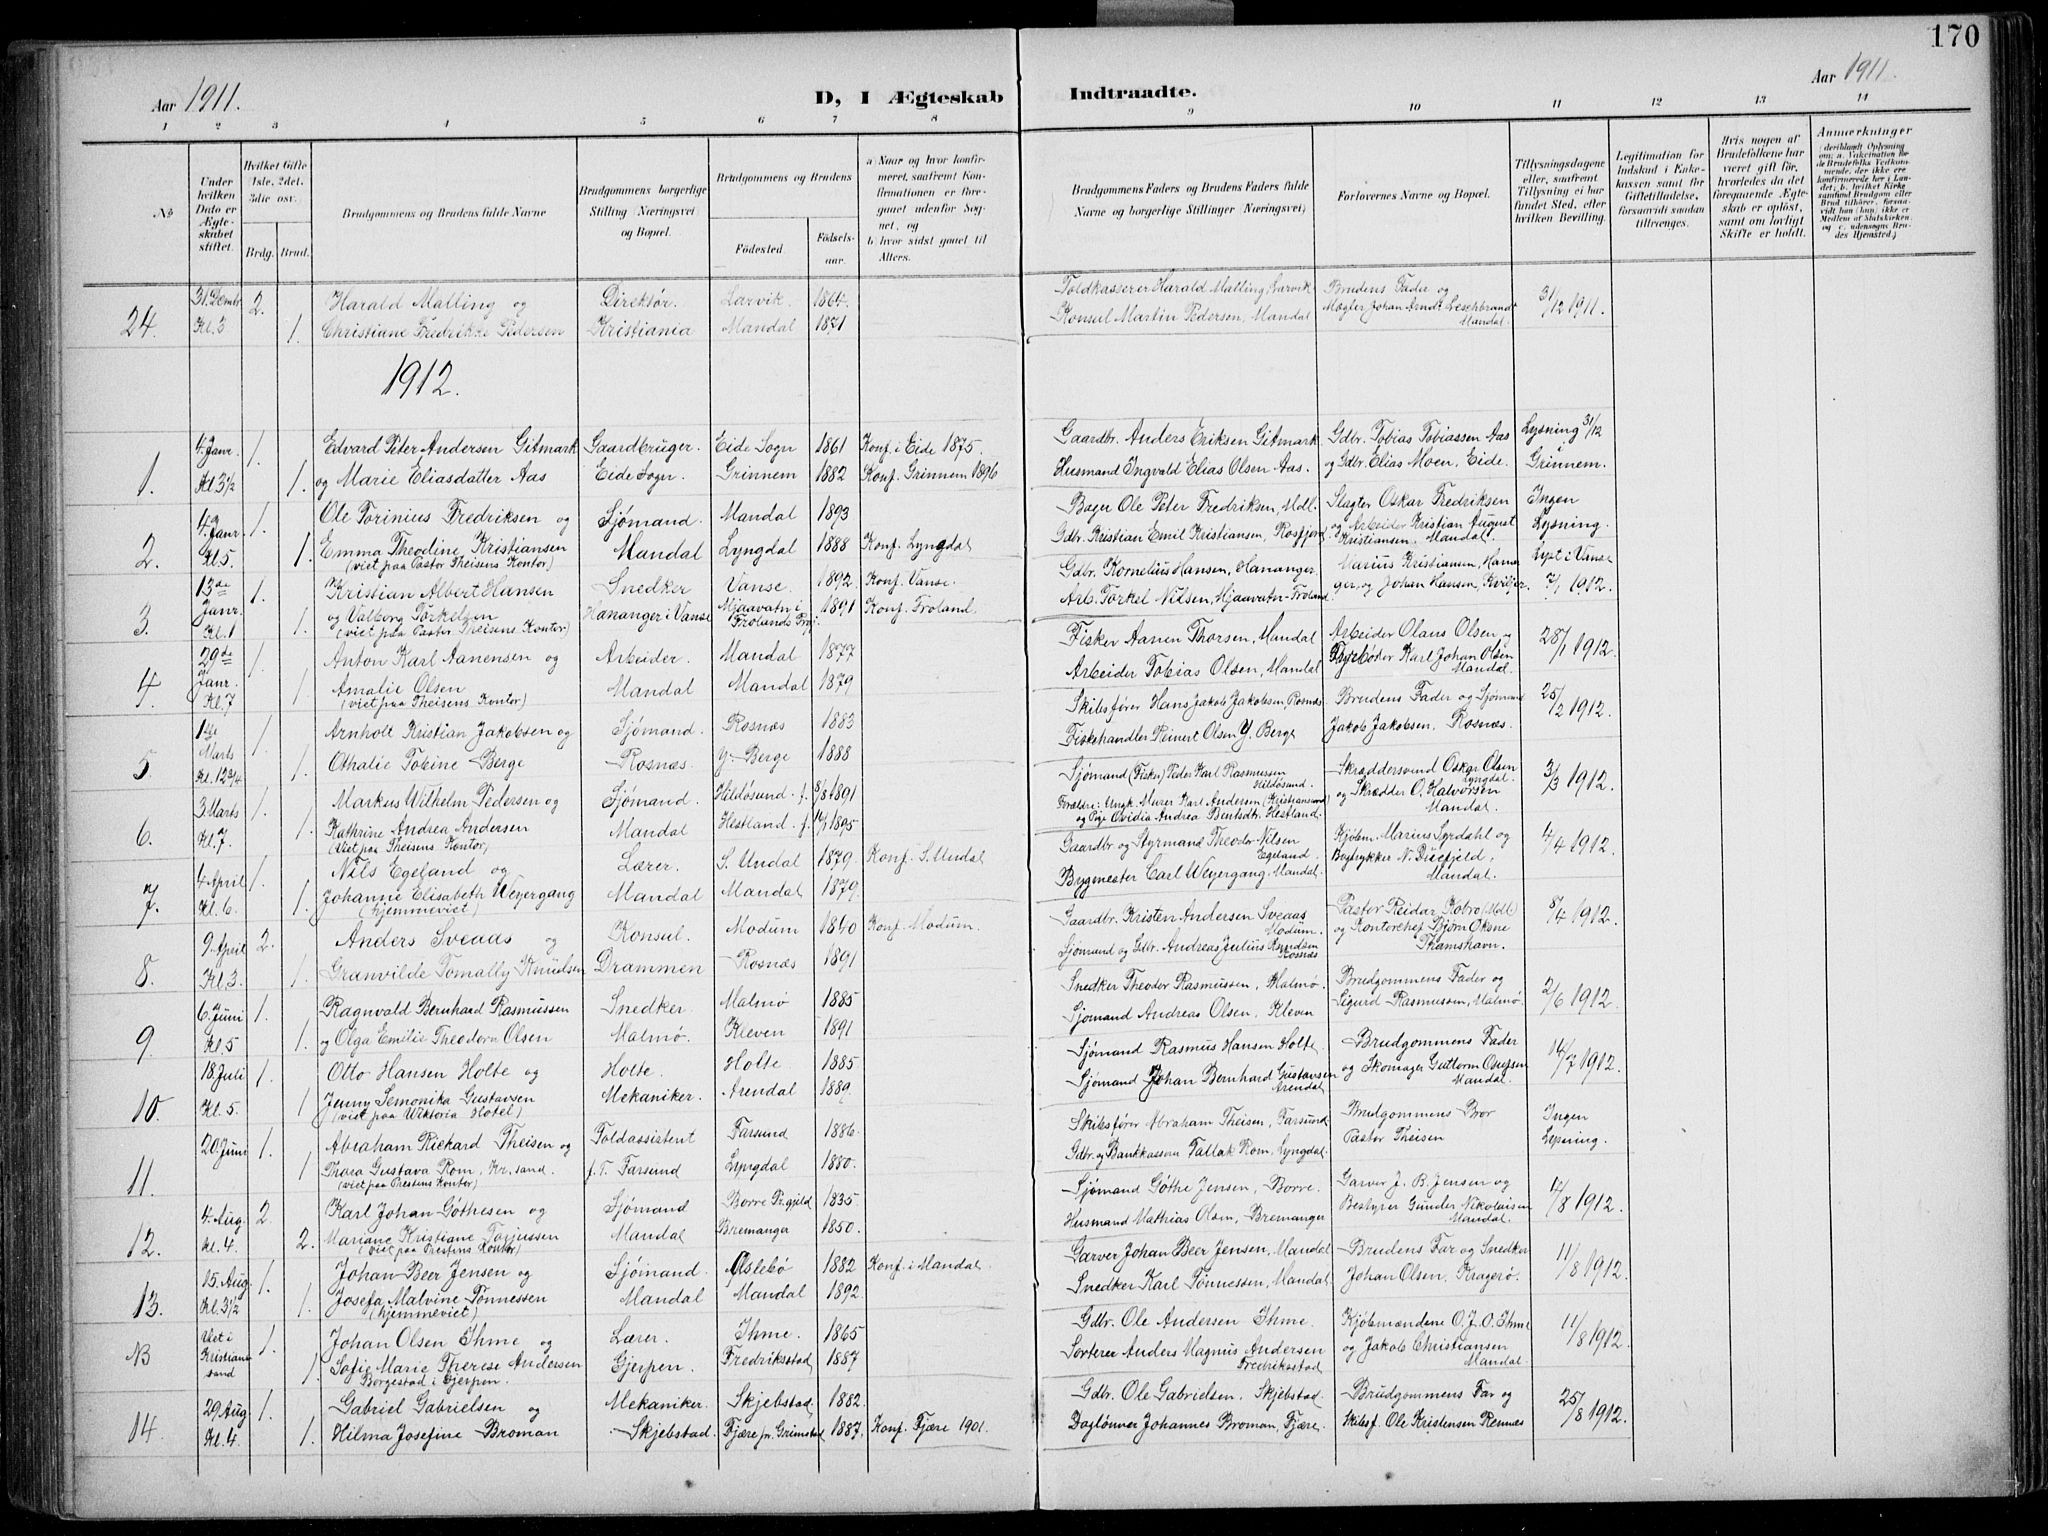 170
Aar 1911.
D, I Ægteskab Indtraadte.
Aar 1911.
1 2 3 4 5 6 7 8 9 10 11 12 13 14
No
Under hvilken Dato er Ægteskabet stiftet.
Hvilket Gifte 1ste, 2det, 3die osv.
Brdg. Brud.
Brudgommens og Brudens fulde Navne
Brudgommens borgerlige Stilling Næringsvei og Bopæl.
Brudgommens og Brudens
Fødested. Fødselsaar.
a) Naar og hvor konfirmeret, saafremt Konfirmationen er foregaaet udenfor Sognet, og
b) hvor sidst gaaet til Alters.
Brudgommens Faders og Brudens Faders fulde Navne og borgerlige Stillinger Næringsvei)
Forlovernes Navne og Bopæl.
Tillysningsdagene eller, saafremt Tillysning ei har fundet Sted, efter hvilken Bevilling.
Legitimation for Indskud i Enkekassen samt for Giftetilladelse, forsaavidt saadan tiltrænges.
Hvis nogen af Brudefolkene har været gift før, hvorledes da det foregaaende Ægteskab er opløst, samt om lovligt Skifte er holdt.
Anmærkninger
(deriblandt Oplysning om: a. Vakcination for Brudefolks Vedkommende, der ikke ere konfirmerede her i Landet; b. hvilket Kirkesamfund Brudgom eller Brud tilhører, forsaavidt han (hun) ikke er Medlem af Statskirken. og c. udensogns Brudes Hjemsted.)
31. Dembr 2. Harald Malling og Direktør. Larvik. 1864. Toldkasserer Harald Malling, Larvik Brudens Fader og 31/12 1911.
24. Kl. 3 1. Christiane Fredrikke Pedersen Kristiania Mandal 1871 Konsul Martin Pedersen, Mandal Mægler Johan Arndt
Mandal.
1912.
4. Janr. 1. Edvard Peter Andersen Gitmark Gaardbruger. Eide Sogn 1861 Konf. i Eide 1875. Gaardbr. Anders Eriksen Gitmark Gdbr. Tobias Tobiassen Aas Lysning 31/12
1. Kl. 3½ 1. og Marie Eliasdatter Aas Eide Sogn. Grinnem 1882 Konf. Grinnem 1896 Husmand Ingvald Elias Olsen Aas. og Gdbr. Elias Moen, Eide. Grinnem.
4. Janr. 1. Ole Torinius Fredriksen og Sjømand. Mandal 1893 Bager Ole Peter Fredriksen, Mdl. Slagter Oskar Fredriksen Ingen
2. Kl. 5. 1. Emma Theodine Kristiansen Mandal Lyngdal 1888 Konf. Lyngdal Gdbr. Kristian Emil Kristiansen, Rosfjord og Arbeider Kristian August Kristiansen. Mandal. Lysning.
(viet paa Pastor Theisens Kontor)
13de Janr. 1. Kristian Albert Hansen Snedker Vanse. 1892. Konf. Vanse. Gdbr. Kornelius Hansen, Hananger. Marius Kristiansen, Hananger, og Johan Hansen, Kviljo. Lyst i Vanse 7/1 1912.
3. Kl. 1 1. og Valborg Torkelsen Hananger i Vanse Mjaavatn i Frolands Prgj. 1891 Konf. Froland. Arb. Torkel Nilsen, Mjaavatn-Froland
(viet paa Pastor Theisens Kontor)
29de Janr. 1. Anton Karl Aanensen og Arbeider. Mandal 1877 Fisker Aanen Thorsen, Mandal Arbeider Olaus Olsen og 28/1 1912.
4. Kl. 7 1. Amalie Olsen Mandal Mandal 1879 Arbeider Tobias Olsen, Mandal Fyrbøder Karl Johan Olsen Mandal.
(viet paa Theisens Kontor)
1ste Marts 1. Arnholt Kristian Jakobsen og Sjømand. Rosnæs 1883 Skibsfører Hans Jakob Jakobsen, Rosnæs Brudens Fader og Sjømand 25/2 1912.
5. Kl. 12 3/4 1. Othalie Tobine Berge Rosnæs. Y. Berge 1888 Fiskehandler Reinert Olsen Y. Berge Jakob Jakobsen, Rosnæs.
3 Marts 1. Markus Wilhelm Pedersen og Sjømand. Hildøsund. f. 8/8 1891 Sjømand (Fisker) Peder Karl Rasmussen Hildøsund. Skræddersvend Oskar Olsen Lyngdal. 3/3 1912.
6. Kl. 7. 1. Kathrine Andrea Andersen Mandal Hestland. f. 14/1 1895 Forældre: Ungk. Murer Karl Andersen (Kristiansund) og Pige Ovidia Andrea Bentsdt. Hestland. og Skrædder O. Halvorsen Mandal.
(viet paa Theisens Kontor)
4 April 1. Nils Egeland og Lærer. S. Undal 1879. Konf. S. Undal Gaardbr og Styrmand Theodor Nilsen Egeland. Kjøbm. Marius Syrdahl og 4/4 1912.
7. Kl. 6. 1. Johanne Elisabeth Weyergang Mandal Mandal 1879. Bygmester Carl Weyergang, Mandal. Bogtrykker N. Duefjeld, Mandal.
(hjemmeviet)
9 April 2. Anders Sveaas og Konsul. Modum 1840 Konf. Modum. Gaardbr. Kristen Andersen Sveaas Modum. Pastor Reidar Kobro (Mdl) 8/4 1912.
8. Kl. 3. 1. Granvilde Tomally Knudsen Drammen Rosnæs 1891 Sjømand og Gdbr. Andreas Julius Knudsen Rosnæs og Kontorchef Bjørn Oksne Thamshavn.
6. Juni 1. Ragnvald Bernhard Rasmussen Snedker Malmø 1885 Snedker Theodor Rasmussen, Malmø Brudgommens Fader og 2/6 1912.
9. Kl. 5 1. og Olga Emilie Theodora Olsen Malmø. Kleven 1891 Sjømand Andreas Olsen, Kleven Sigurd Rasmussen, Malmø.
18. Juli 1. Otto Hansen Holte og Holte. Holte 1885 Sjømand Rasmus Hansen Holte. Brudgommens Fader 14/7 1912.
10 Kl. 5. 1 Jenny Semonika Gustavsen Mekaniker. Arendal 1889. Sjømand Johan Bernhard Gustavsen Arendal og Skomager Guttorm Omfsen Mandal.
(viet paa Wiktoria Hotel)
20. Juni 1. Abraham Rickard Theisen og Toldassistent Farsund 1886. Skibsfører Abraham Theisen, Farsund Brudgommens Bror Ingen
11. 1 Thora Gustava Rom, Kr.sand. f. T. Farsund Lyngdal 1880. Gdbr. og Bankkasserer Tallak Rom, Lyngdal. Pastor Theisen Lysning.
(viet paa Prestens Kontor)
4. Aug. 2. Karl Johan Gøthesen og Sjømand Borre Pr.gjeld 1835 Sjømand Gøthe Jensen, Borre. Garver J. B. Jensen og 4/8 1912.
12. Kl. 4. 2. Mariane Kristiane Torjussen Mandal Bremanger 1850. Husmand Mathias Olsen, Bremanger Bestyrer Gunder Nikolaisen Mandal.
(viet paa Prestens Kontor)
15. Aug. 1. Johan Beer Jensen og Sjømand. Oslebø 1882 Konf. i Mandal. Garver Johan Beer Jensen, Mandal Brudens Far og Snedker 11/8 1912.
13. Kl. 3½ 1. Josefa Malvine Tønnessen Mandal Mandal 1892 Snedker Karl Tønnessen, Mandal Johan Olsen, Kragerø.
(hjemmeviet)
Viet i 1. Johan Olsen Ihme og Lærer. Ihme. 1865 Gdbr. Ole Andersen Ihme. Kjøbmændene O. J. O. Ihme 11/8 1912.
NB Kristiansand 1. Sofie Marie Therese Andersen Gjerpen. Fredriksstad 1887 Sorterer Anders Magnus Andersen Fredriksstad og Jakob Christiansen Mandal.
Borgestad i Gjerpen.
29 Aug. 1. Gabriel Gabrielsen og Mekaniker. Skjebstad. 1882. Gdbr. Ole Gabrielsen. Skjebstad. Brudgommens Far og 25/8 1912.
14. Kl. 4. 1. Hilma Josefine Broman Skjebstad. Fjære pr. Grimstad 1887. Konf. Fjære 1901. Daglønner Johannes Broman, Fjære. Skibsf. Ole Kristensen Rennæs